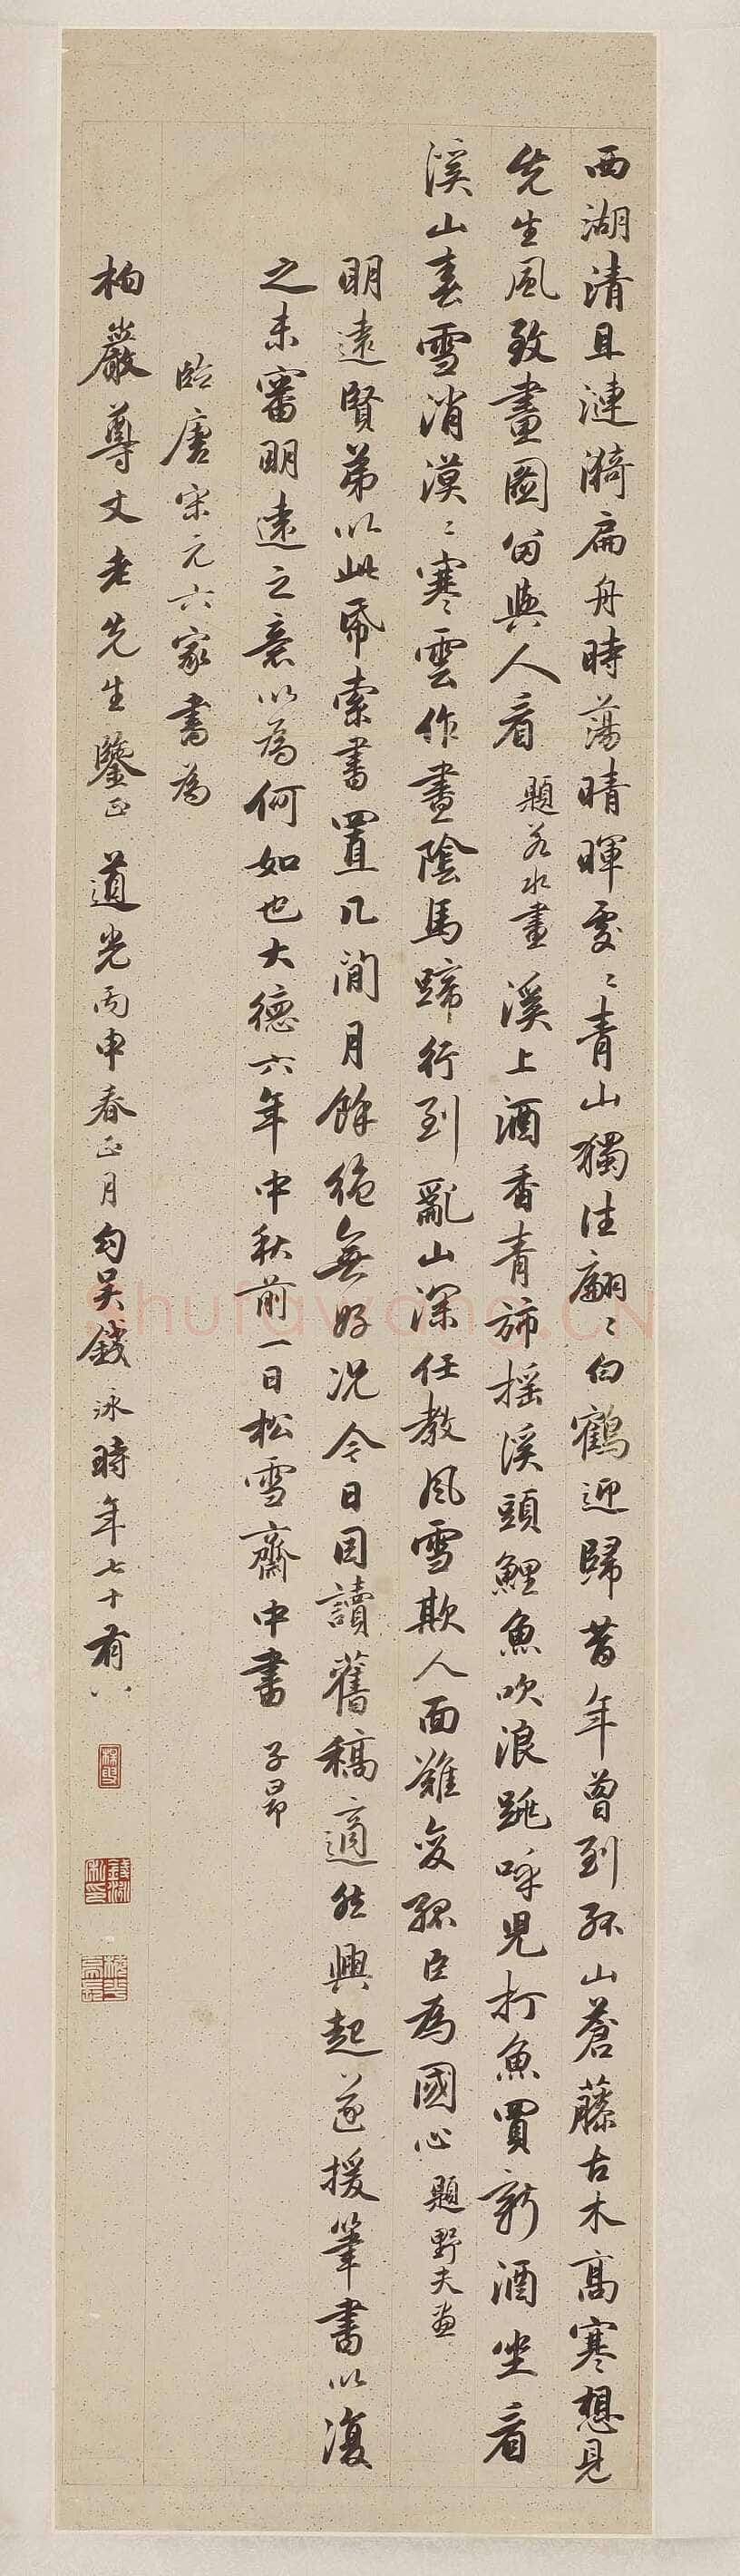 西湖清且漣漪扁舟時蕩晴暉處〻青山獨往翩〻白鶴迎歸昔年曾到孤山蒼藤古木高寒想見
先生風致畫圖留與人看 題若水畫 溪上酒香青旆搖溪頭鯉魚吹浪跳呼兒打魚買新酒坐看
溪山春雪消漠〻寒雲作晝陰馬蹄行到亂山深任教風雪欺人面難变孤臣為國心 題野夫畫
明遠賢弟以此帋索書置几間月餘絶無好况今日因讀舊稿適然興起遂援筆書以復
之未審明遠之意以為何如也大德六年中秋前一日松雪齋中書 子昂
臨唐宋元六家書為
柏巖尊丈老先生鑒正 道光丙申春正月勾吳錢泳時年七十有八
shufawang.CN